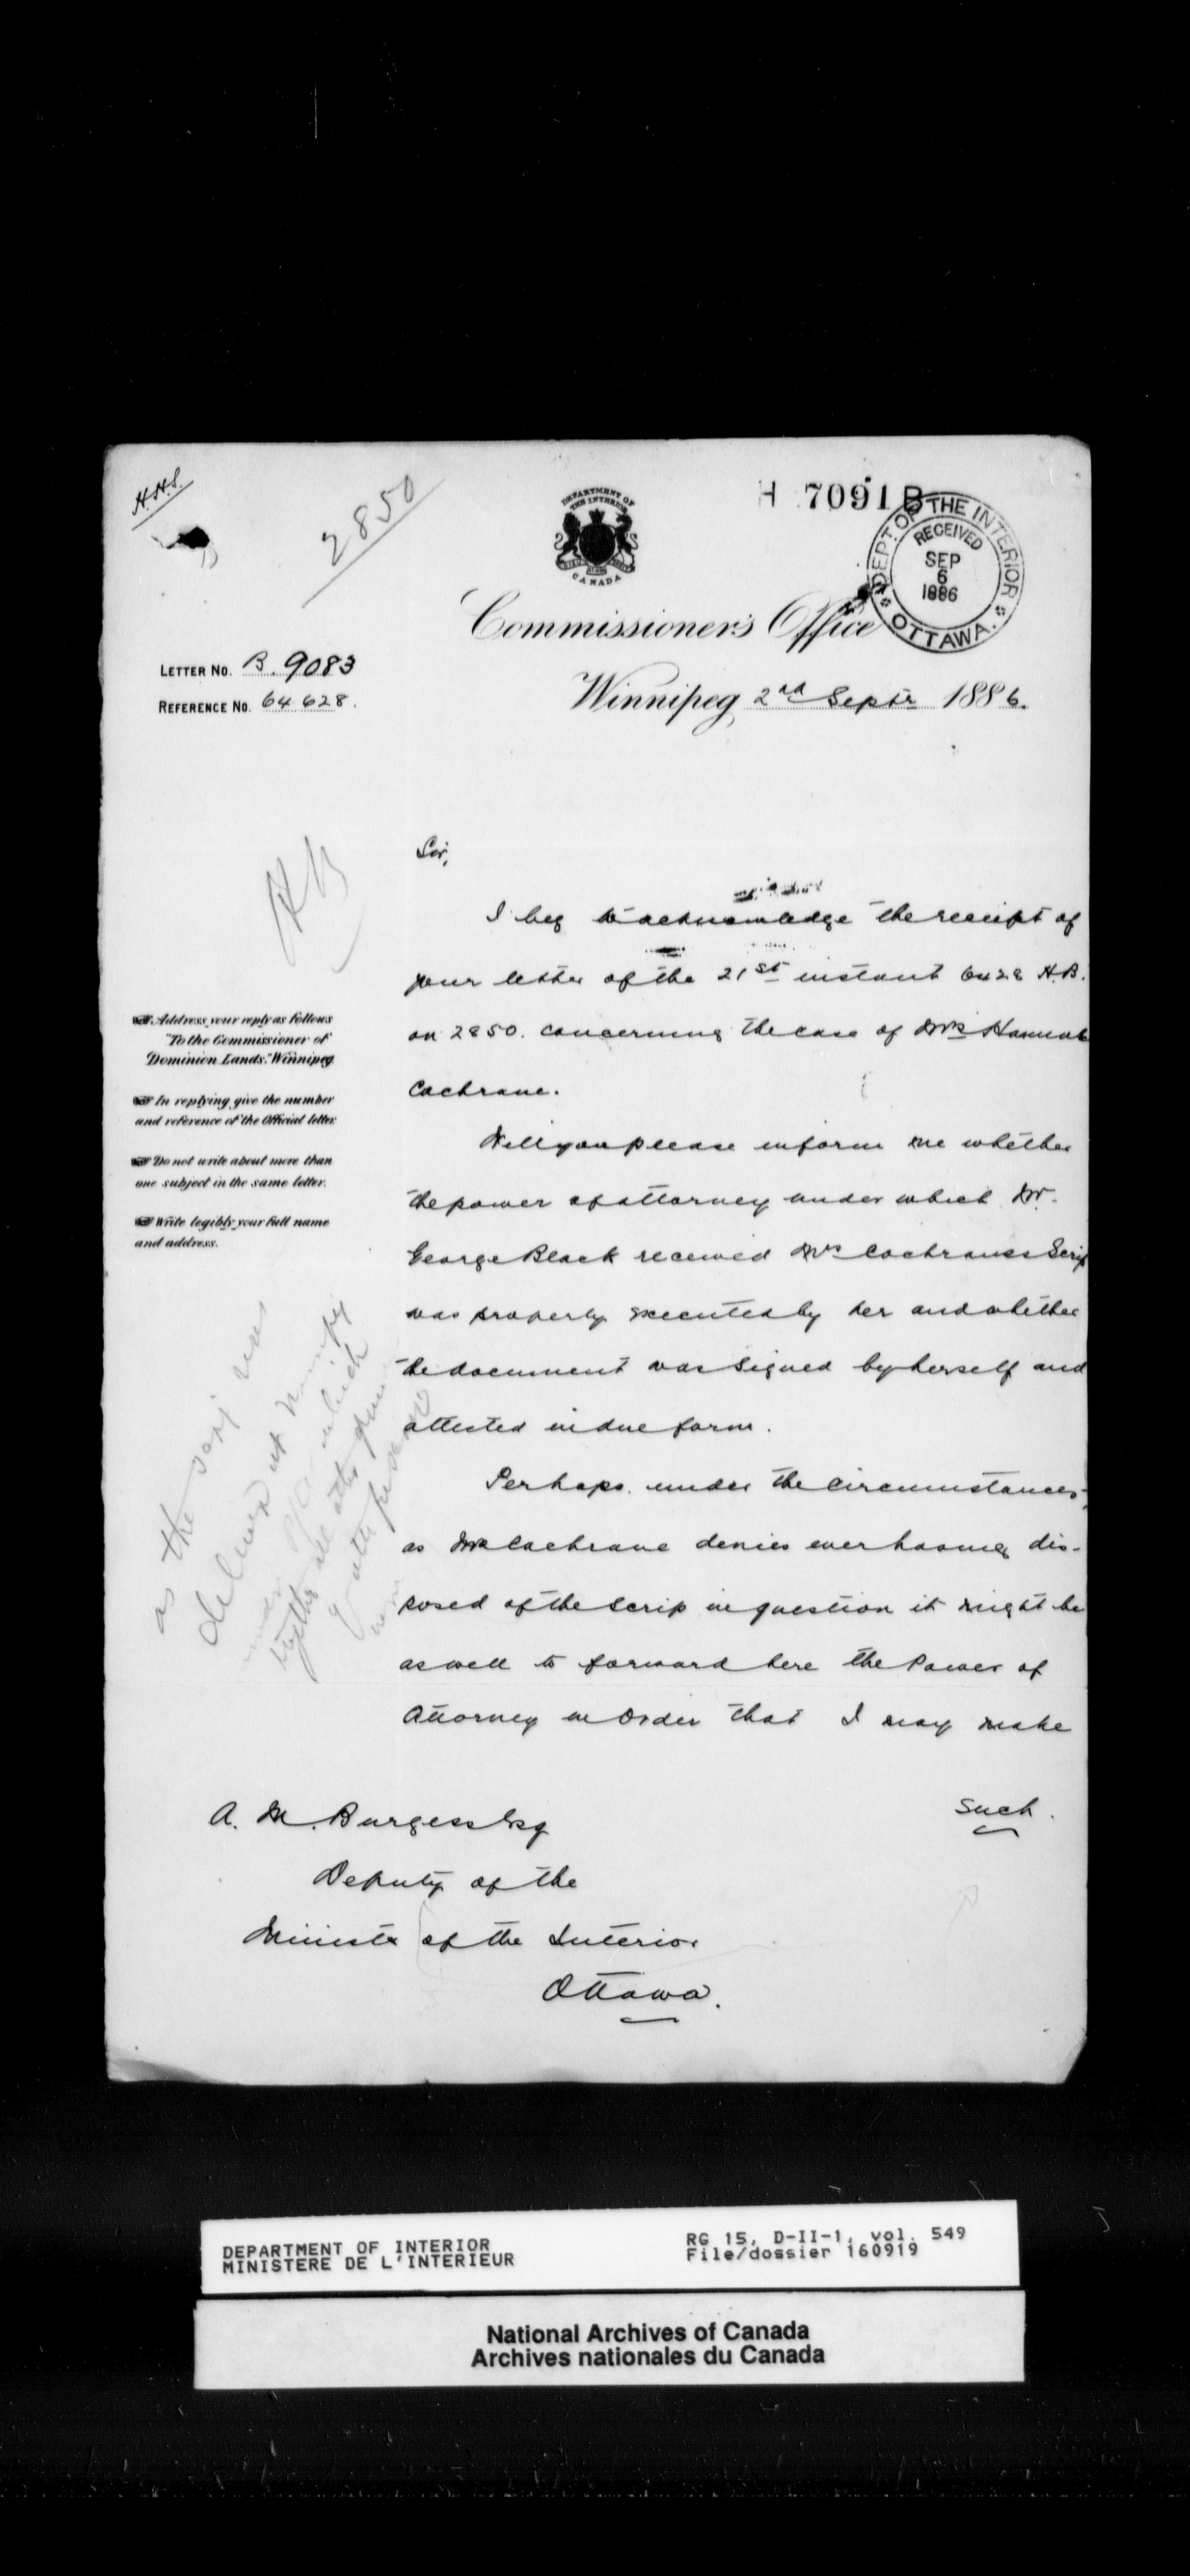 H.H.S.
2850
DEPARTMENT OF
THE INTERIOR
CANADA
H 7091 B
DEPT. OF THE INTERIOR
RECEIVED
SEP
6
1886
OTTAWA.
Commissioner's Office
LETTER NO. B. 9083
REFERENCE NO. 64 628.
Winnipeg 2nd Septr 1886.
HB
Sir,
I beg to acknowledge the receipt of
your letter of the 21st instant 6428 H.B.
on 2850. concerning the case of Mrs Hannah
Cochrane.
Address your reply as follows
"To the Commissioner of
Dominion Lands." Winnipeg
In replying give the number
and reference of the Official letter.
Do not write about more than
one subject in the same letter.
Write legibly your full name
and address.
Will you please inform me whether
the power of attorney under which Mr.
George Black received Mrs Cochranes Scrip
was properly executed by her and whether
the document was signed by herself and
attested in due form.
Perhaps under the circumstances,
as Mrs Cochrane denies ever having dis-
posed of the scrip in question it might be
as well to forward here the Power of
Attorney in order that I may make
such.
as the scrip was
delivered at Winnipeg
under which
all other
A. M. Burgess Esq
Deputy of the
Minister of the Interior
Ottawa.
DEPARTMENT OF INTERIOR
MINISTERE DE L'INTERIEUR
RG 15, D-II-1, vol. 549
File/dossier 160919
National Archives of Canada
Archives nationales du Canada